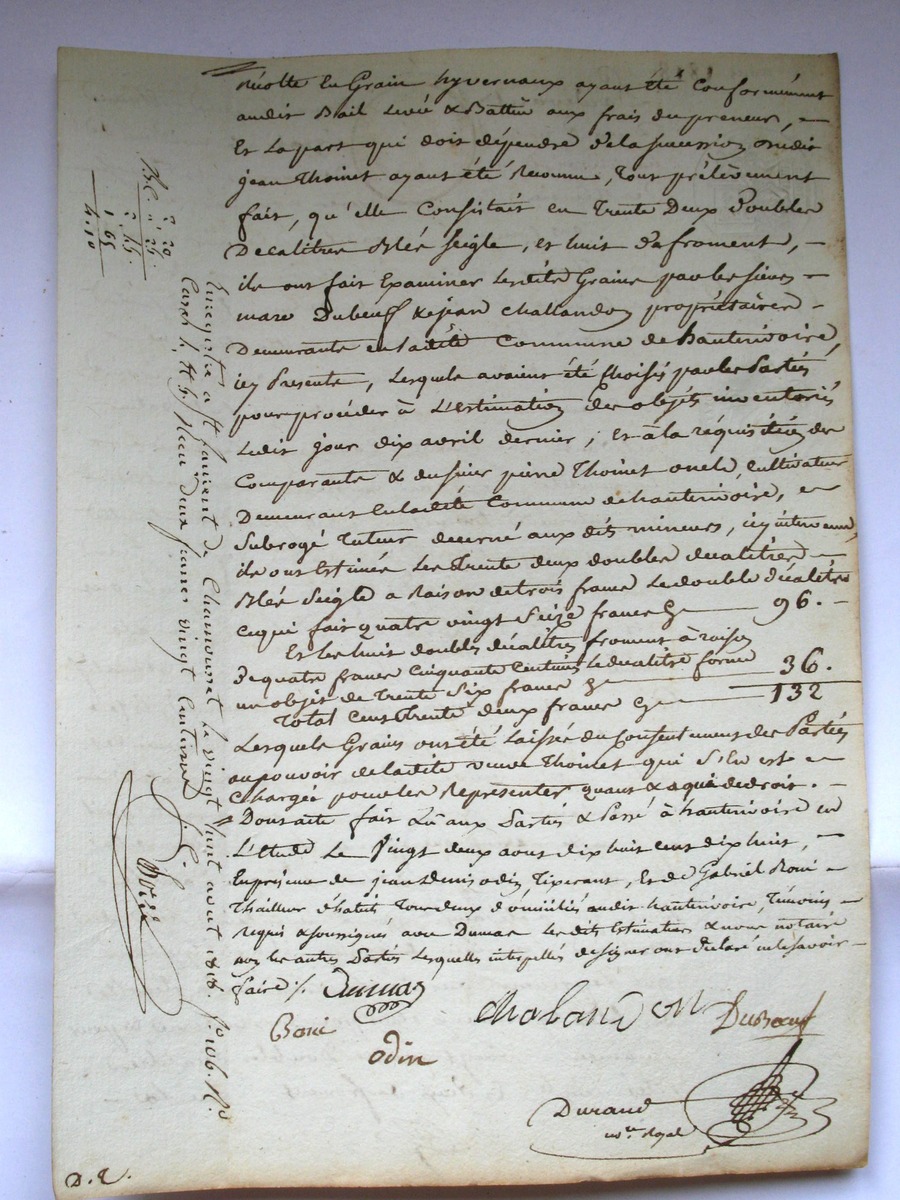 récolte en Grain hyvernaux ayant été Conformément
audit Bail Levée & Battue aux frais du preneur, -
Et La part qui doit dépendre de la succession dudit
jean Thoinet ayant été Reconnue, Tout prélèvement
fait, qu'elle Consistait en Trente Deux Doubles
Decalitres Blés Seigle, et huit de froment, -
ils ont fait Examiner Lesdits Grains par les sieurs -
marc Dubeuf & jean Challandon propriétaires -
Demeurants en ladite Commune de hauterivoire,
icy Presents, Lesquels avaient été Choisis par les Parties
pour procéder à L'estimation des objets inventoriés
Ledit jour dix avril dernier; et à la réquisition des
Comparants & du sieur pierre Thoinet oncle, Cultivateur
Demeurant en Ladite Commune de hauterivoire, -
Subrogé Tuteur decerné aux dits mineurs, icy intervenu,
ils ont Estimés Les Trente deux doubles decalitres -
Blés Seigle a Raison de trois francs Le double décalitre
ce qui fait quatre vingt Seize francs Cy 96. -
Et les huit doubles décalitres froment à raison
de quatre francs Cinquante Centimes le decalitre forme
un objet de Trente Six francs Cy 36.
Total Cent Trente deux francs Cy 132
Lesquels Grains ont été Laissés du Consentement des Parties
au pouvoir de ladite veuve Thoinet qui S'En est -
Chargée pour les Représenter quant & a qui de droit. -
Dont acte fait & Lû aux Parties & Passé à hauterivoire en
L'étude Le Vingt deux aout dix huit cent dix huit, -
En présence de jean Denis odin, Tixerant, Et de Gabriel Boni -
Thailleur d'habits Tous deux domiciliés audit hauterivoire, Témoins -
requis & soussignés avec Dumas Les dits Estimateurs & nous notaire
non les autres Parties Lesquelles interpellés de signer ont déclaré ne le savoir -
faire ./. Dumas
Chalandon Dubœuf
Boni
odin
Durand
nre Royal
D. E.
Enregistré a St Laurent de Chamousset Le vingt huit aout 1818. fo. 106. Ro
Reçu deux francs vingt Centimes
2, 20
1 65
4. 10